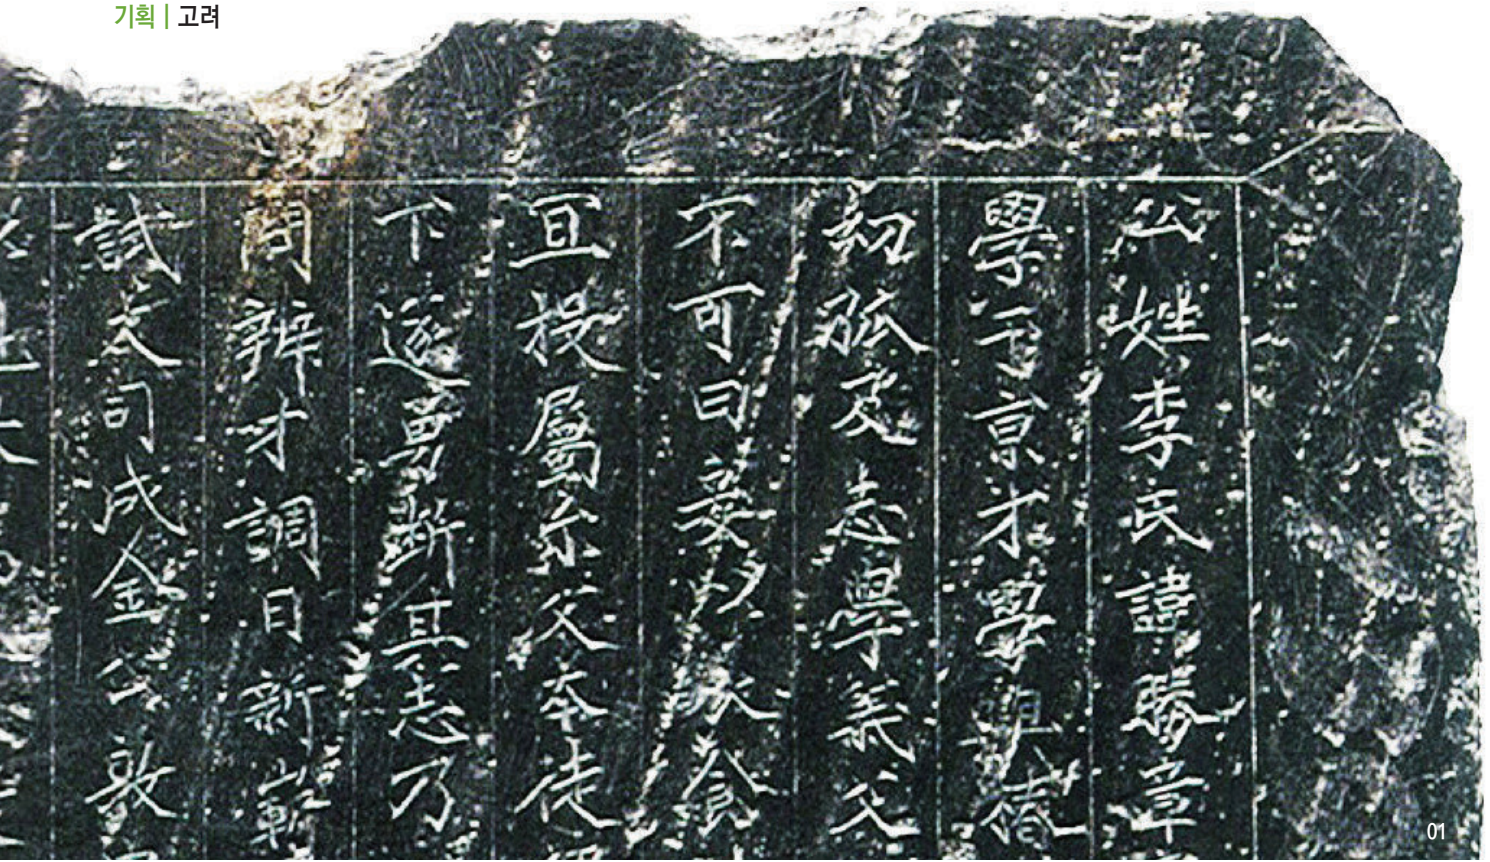 기획 | 고려
公姓李氏諱勝章
學于京才學
幼孤及志學義父
不可曰妾以衣食
宜投屬亦父本徒
下遂勇斷其志乃
問辨才調日新嶄
試大司成金公敦
01